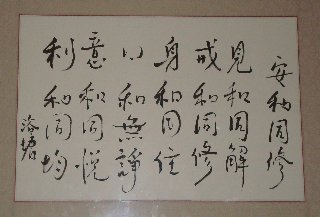 安和同修
見和同解
戒和同修
身和同住
口和無諍
意和同悅
利和同均